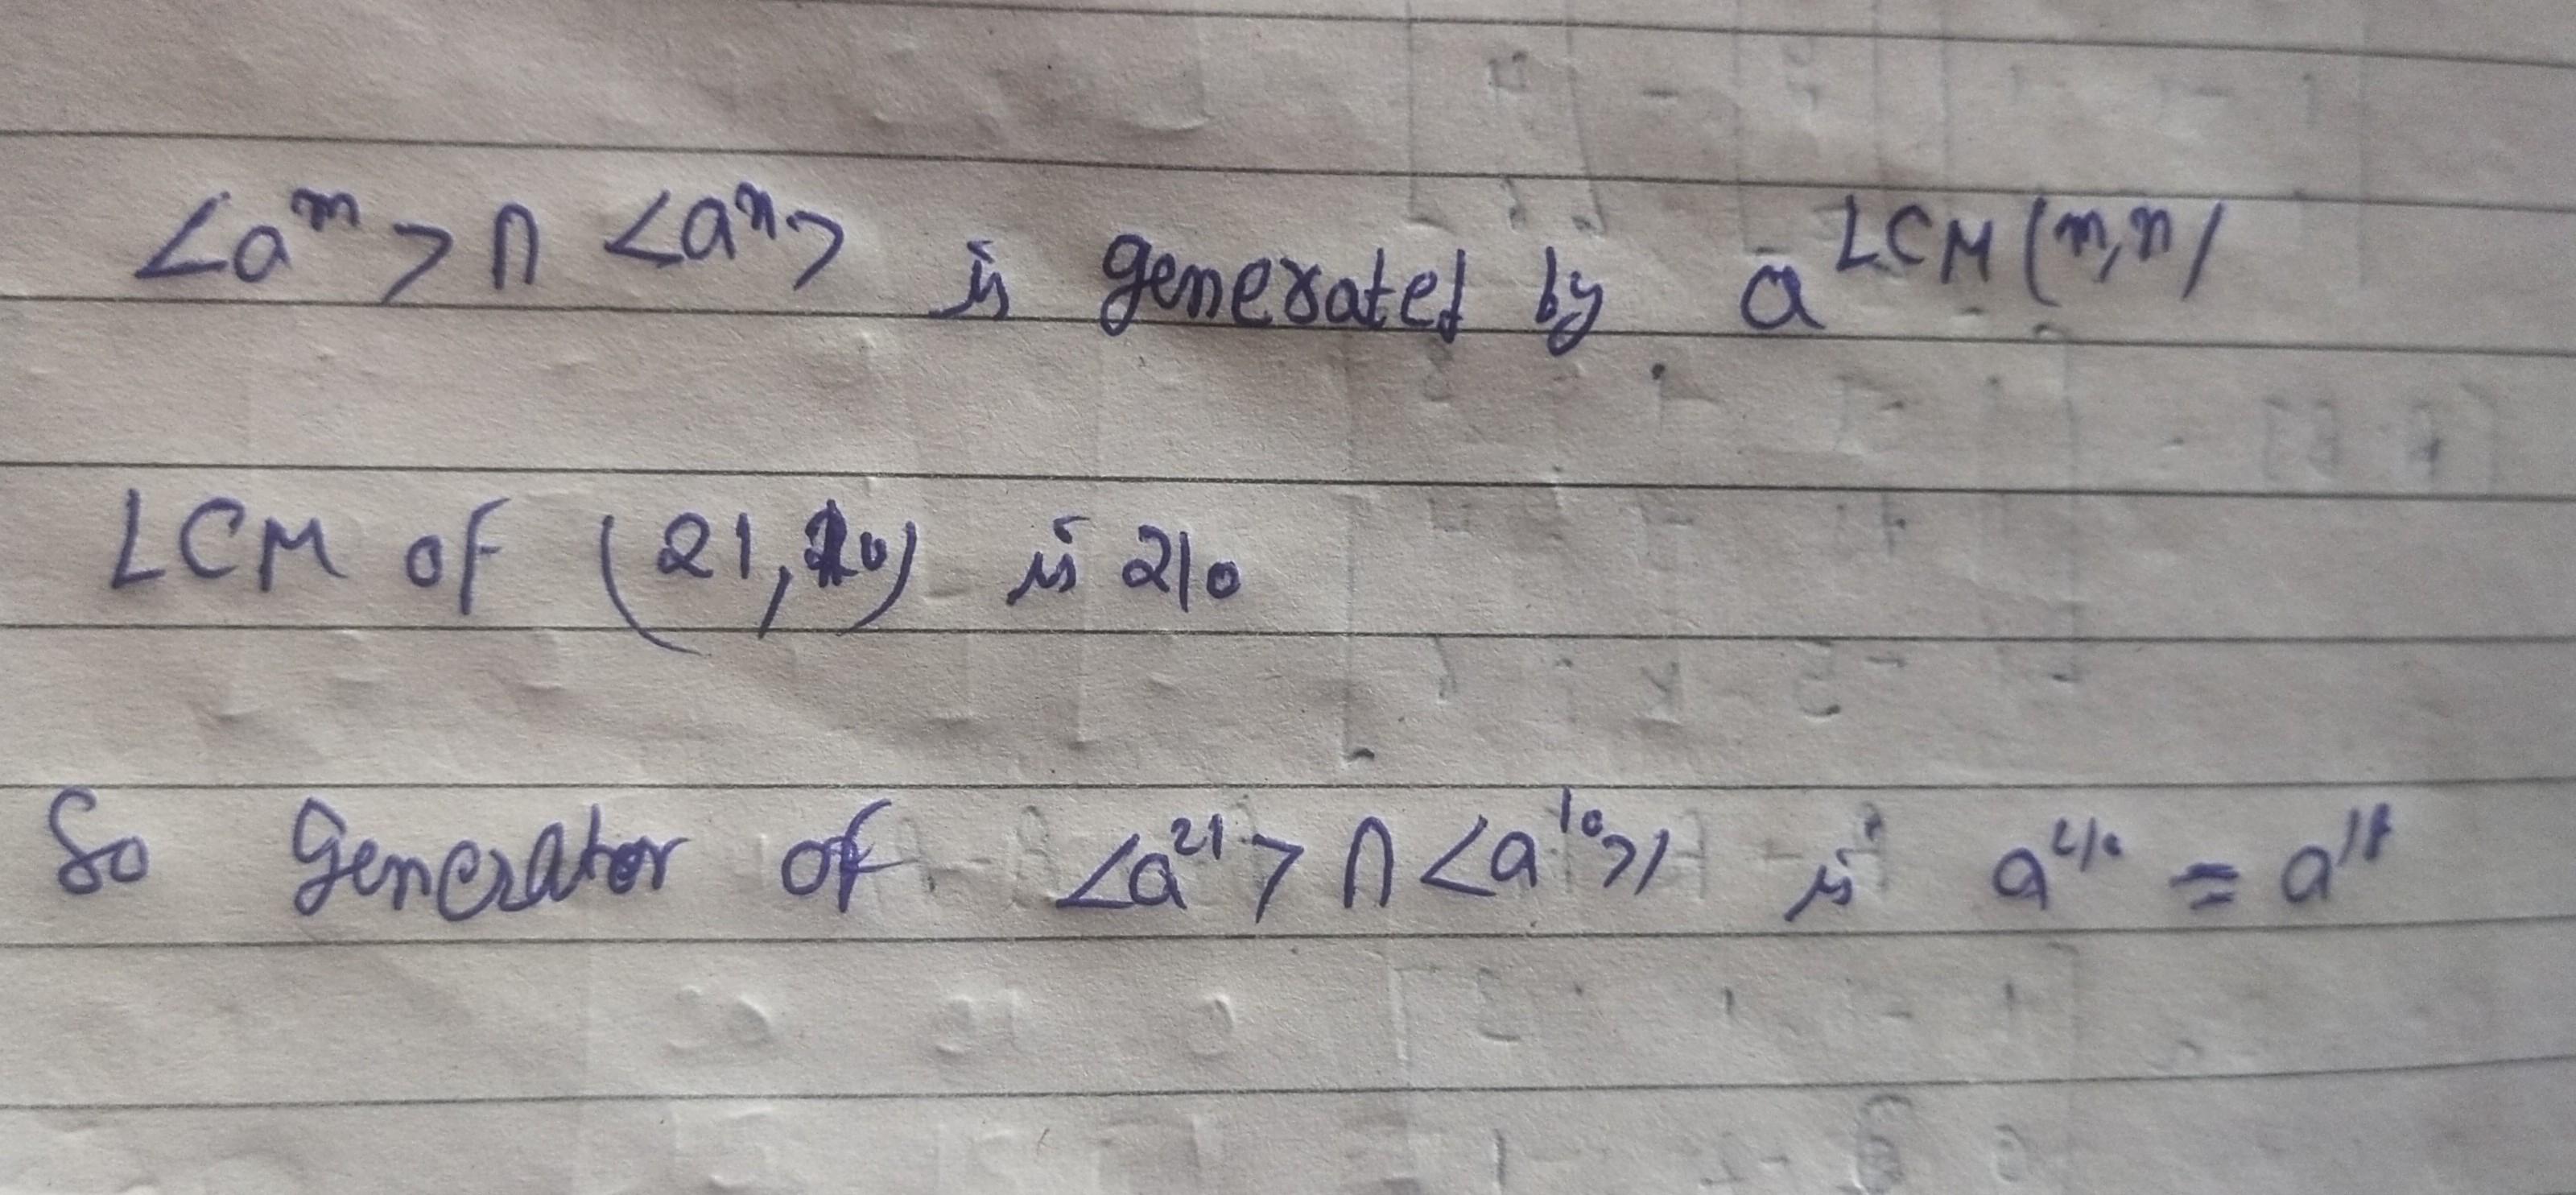 <a^m> ∩ <a^n> is generated by a^LCM(m,n)
LCM of (21,10) is 210
So generator of <a^21> ∩ <a^10> is a^210 = a^18